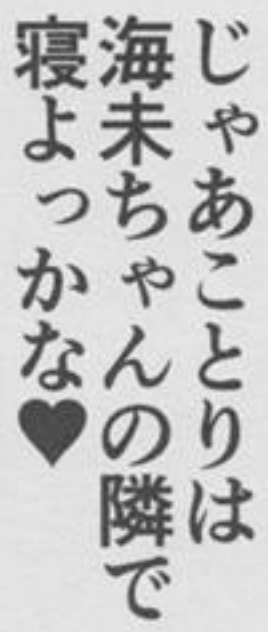 じゃあことりは
海未ちゃんの隣で
寝よっかな♥